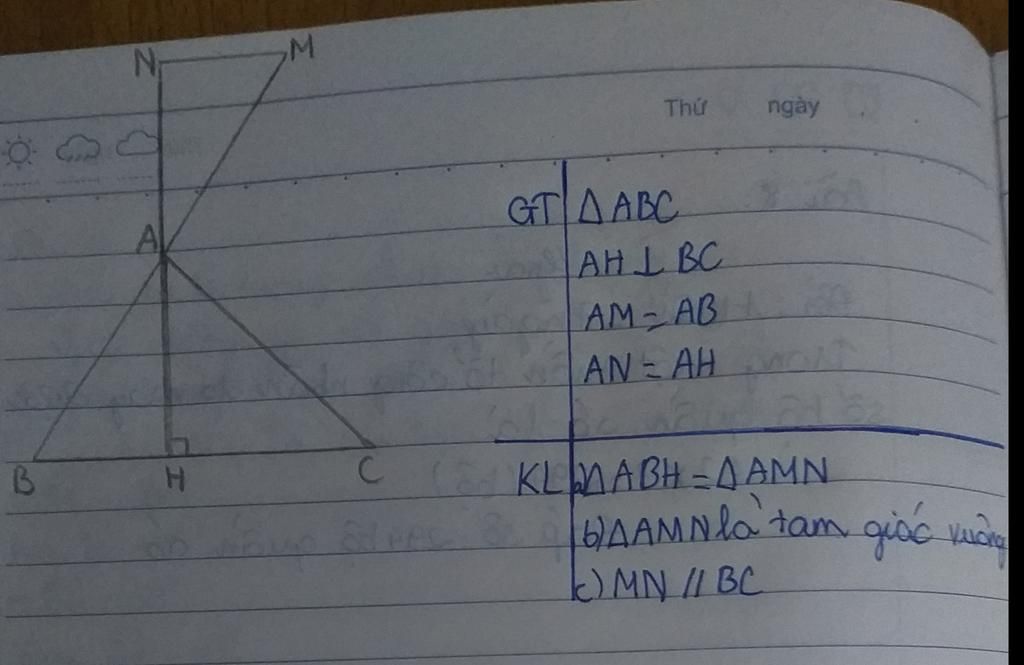 N M
Thứ ngày
GT ΔABC
A AH ⊥ BC
AM = AB
AN = AH
B H C KL a) ΔABH = ΔAMN
b) ΔAMN là tam giác vuông
c) MN // BC